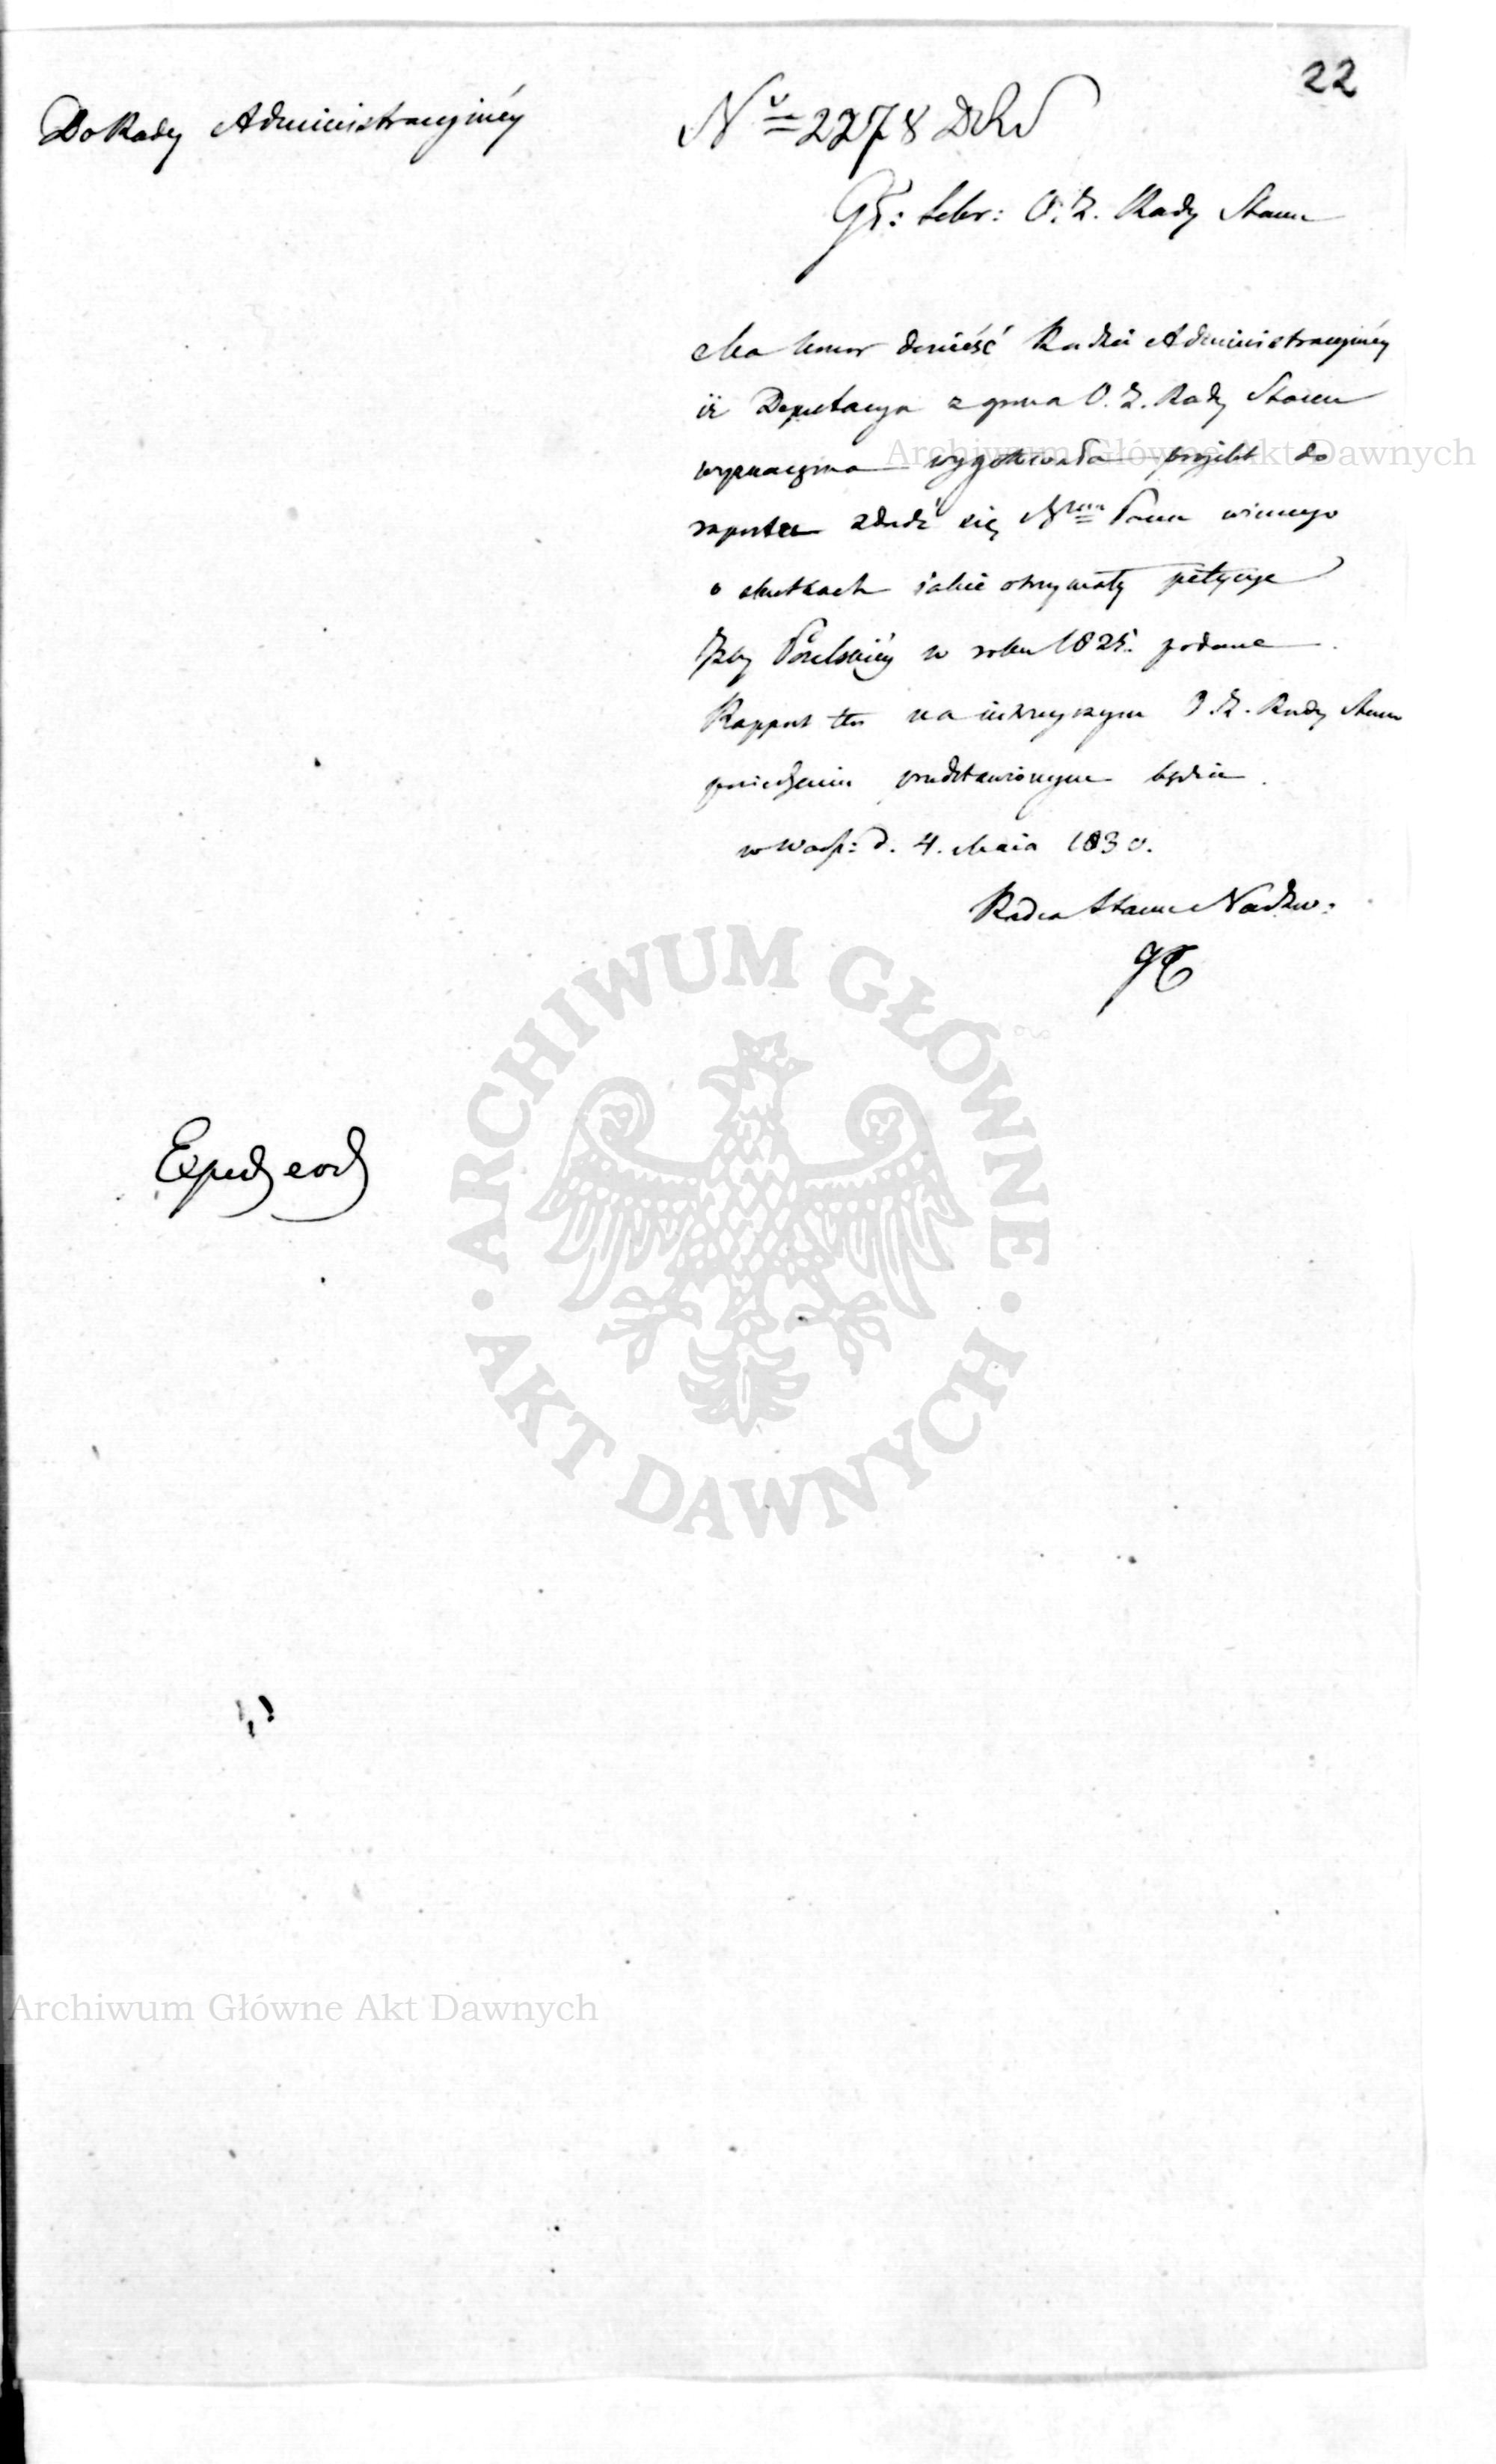 22
Do Rady Administracyinéy
No 2278 DRS
Gł: Sekr: O. Z. Rady Stanu
Ma honor donieść Radzie Administracyinéy
iż Deputacya z grona O. Z. Rady Stanu
wyznaczona wygotowała projekt do
raportu zdadź się Nmu Panu winnego
o skutkach iakie otrzymały petycye
Izby Poselskiéy w roku 1825. podane.
Rapport ten na iutrzyszym O. Z. Rady Stanu
posiedzeniu przedstawionym będzie.
w Warsz: d. 4. Maia 1830.
Radca Stanu Nadzw:
Exped eod
Archiwum Główne Akt Dawnych
ARCHIWUM GŁÓWNE
AKT DAWNYCH
Archiwum Główne Akt Dawnych